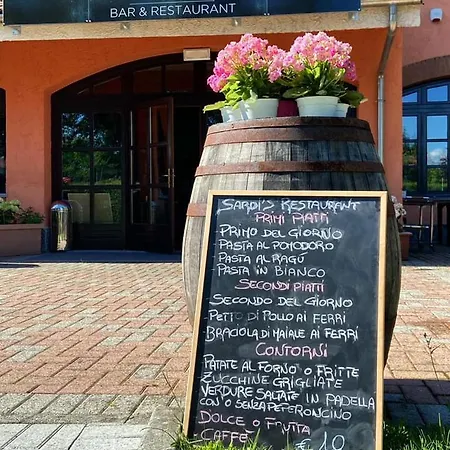 BAR & RESTAURANT
SARDI'S RESTAURANT
PRIMI PIATTI
PRIMO DEL GIORNO
PASTA AL POMODORO
PASTA AL RAGU
PASTA IN BIANCO
SECONDI PIATTI
SECONDO DEL GIORNO
PETTO DI POLLO AI FERRI
BRACIOLA DI MAIALE AI FERRI
CONTORNI
PATATE AL FORNO O FRITTE
ZUCCHINE GRIGLIATE
VERDURE SALTATE IN PADELLA
CON O SENZA PEPERONCINO
DOLCE O FRUTTA
CAFFÈ
€ 10